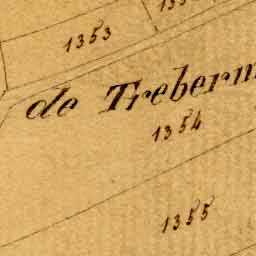 1353
de Treberm
1354
1355